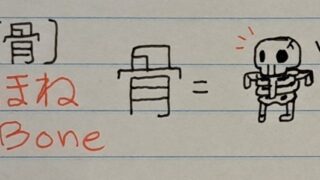 [骨] 骨 =
まね
Bone